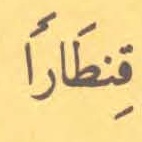 قِنطَارأً